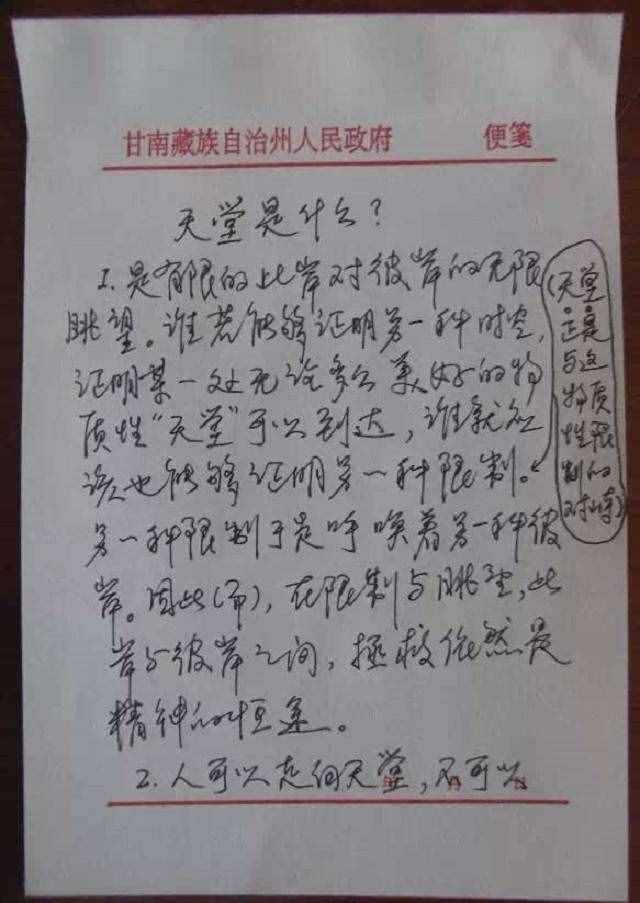 甘南藏族自治州人民政府 便笺
天堂是什么？
1. 是有限的此岸对彼岸的无限
眺望。谁若能够证明另一种时空，
证明某一处无论多么美好的物
质性“天堂”可以到达，谁就应
该也能够证明另一种限制。
另一种限制于是呼唤着另一种彼
岸。因此（而），在限制与眺望，此
岸与彼岸之间，拯救依然是
精神的恒途。
2. 人可以走向天堂，不可以
（天堂
正是
与这
物质
性限
制的
对峙）